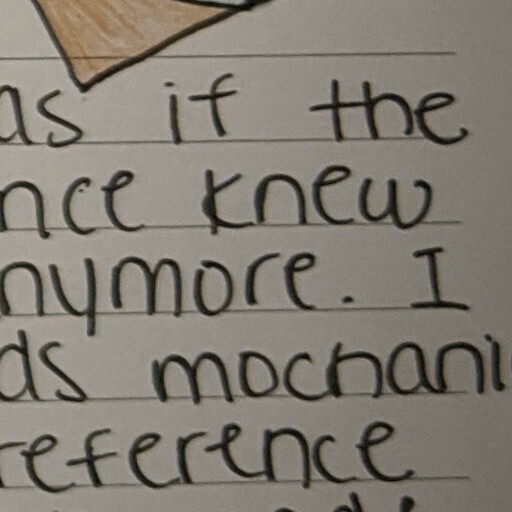 as if the
nce knew
nymore. I
ds mochani
reference